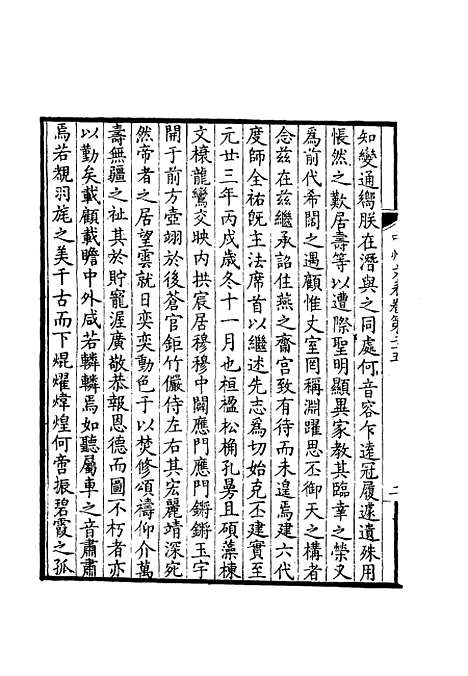 知變通嚮朕在潛與之同處何音容乍遠冠履遽遺殊用
悵然之歎居壽等以遭際聖明顯異家教其臨幸之榮又
爲前代希闊之遇顧惟丈室罔稱淵躍思丕御天之構者
念茲在茲繼承詔住燕之齋宮致有待而未遑焉建六代
度師全祐旣主法席首以繼述先志爲切始克丕建實至
元廿三年丙戌歲冬十一月也桓楹松桷孔曷且碩藻棟
文榱龍鸞交映內拱宸居穆穆中闢應門應門鏘鏘玉宇
開于前方壺翊於後蒼官鉅竹儼侍左右其宏麗靖深宛
然帝者之居望雲就日奕奕動色于以焚修頌禱仰介萬
壽無疆之祉其於貯寵渥廣敬恭報恩德而圖不朽者亦
以勤矣載顧載瞻中外咸若轔轔焉如聽屬車之音肅肅
焉若覩羽旄之美千古而下焜燿煒煌何啻振碧霞之孤